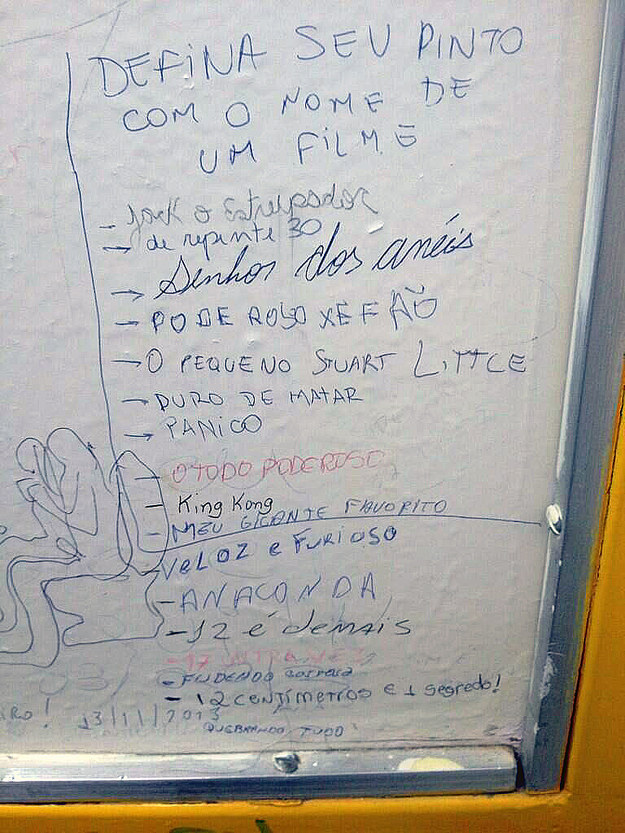 DEFINA SEU PINTO
COM O NOME DE
UM FILME
- Jack o Estrupador
→ de repente 30
→ Senhor dos anéis
- PODEROSO XEFÃO
→ O PEQUENO STUART LITTLE
→ DURO DE MATAR
→ PANICO
- O TODO PODEROSO
- King Kong
- MEU GIGANTE FAVORITO
- VELOZ e FURIOSO
- ANACONDA
- 12 é demais
- 17
- FUDENDO
- 12 centímetros e 1 segredo!
IRO! 13/11/2013
QUEBRANDO TUDO